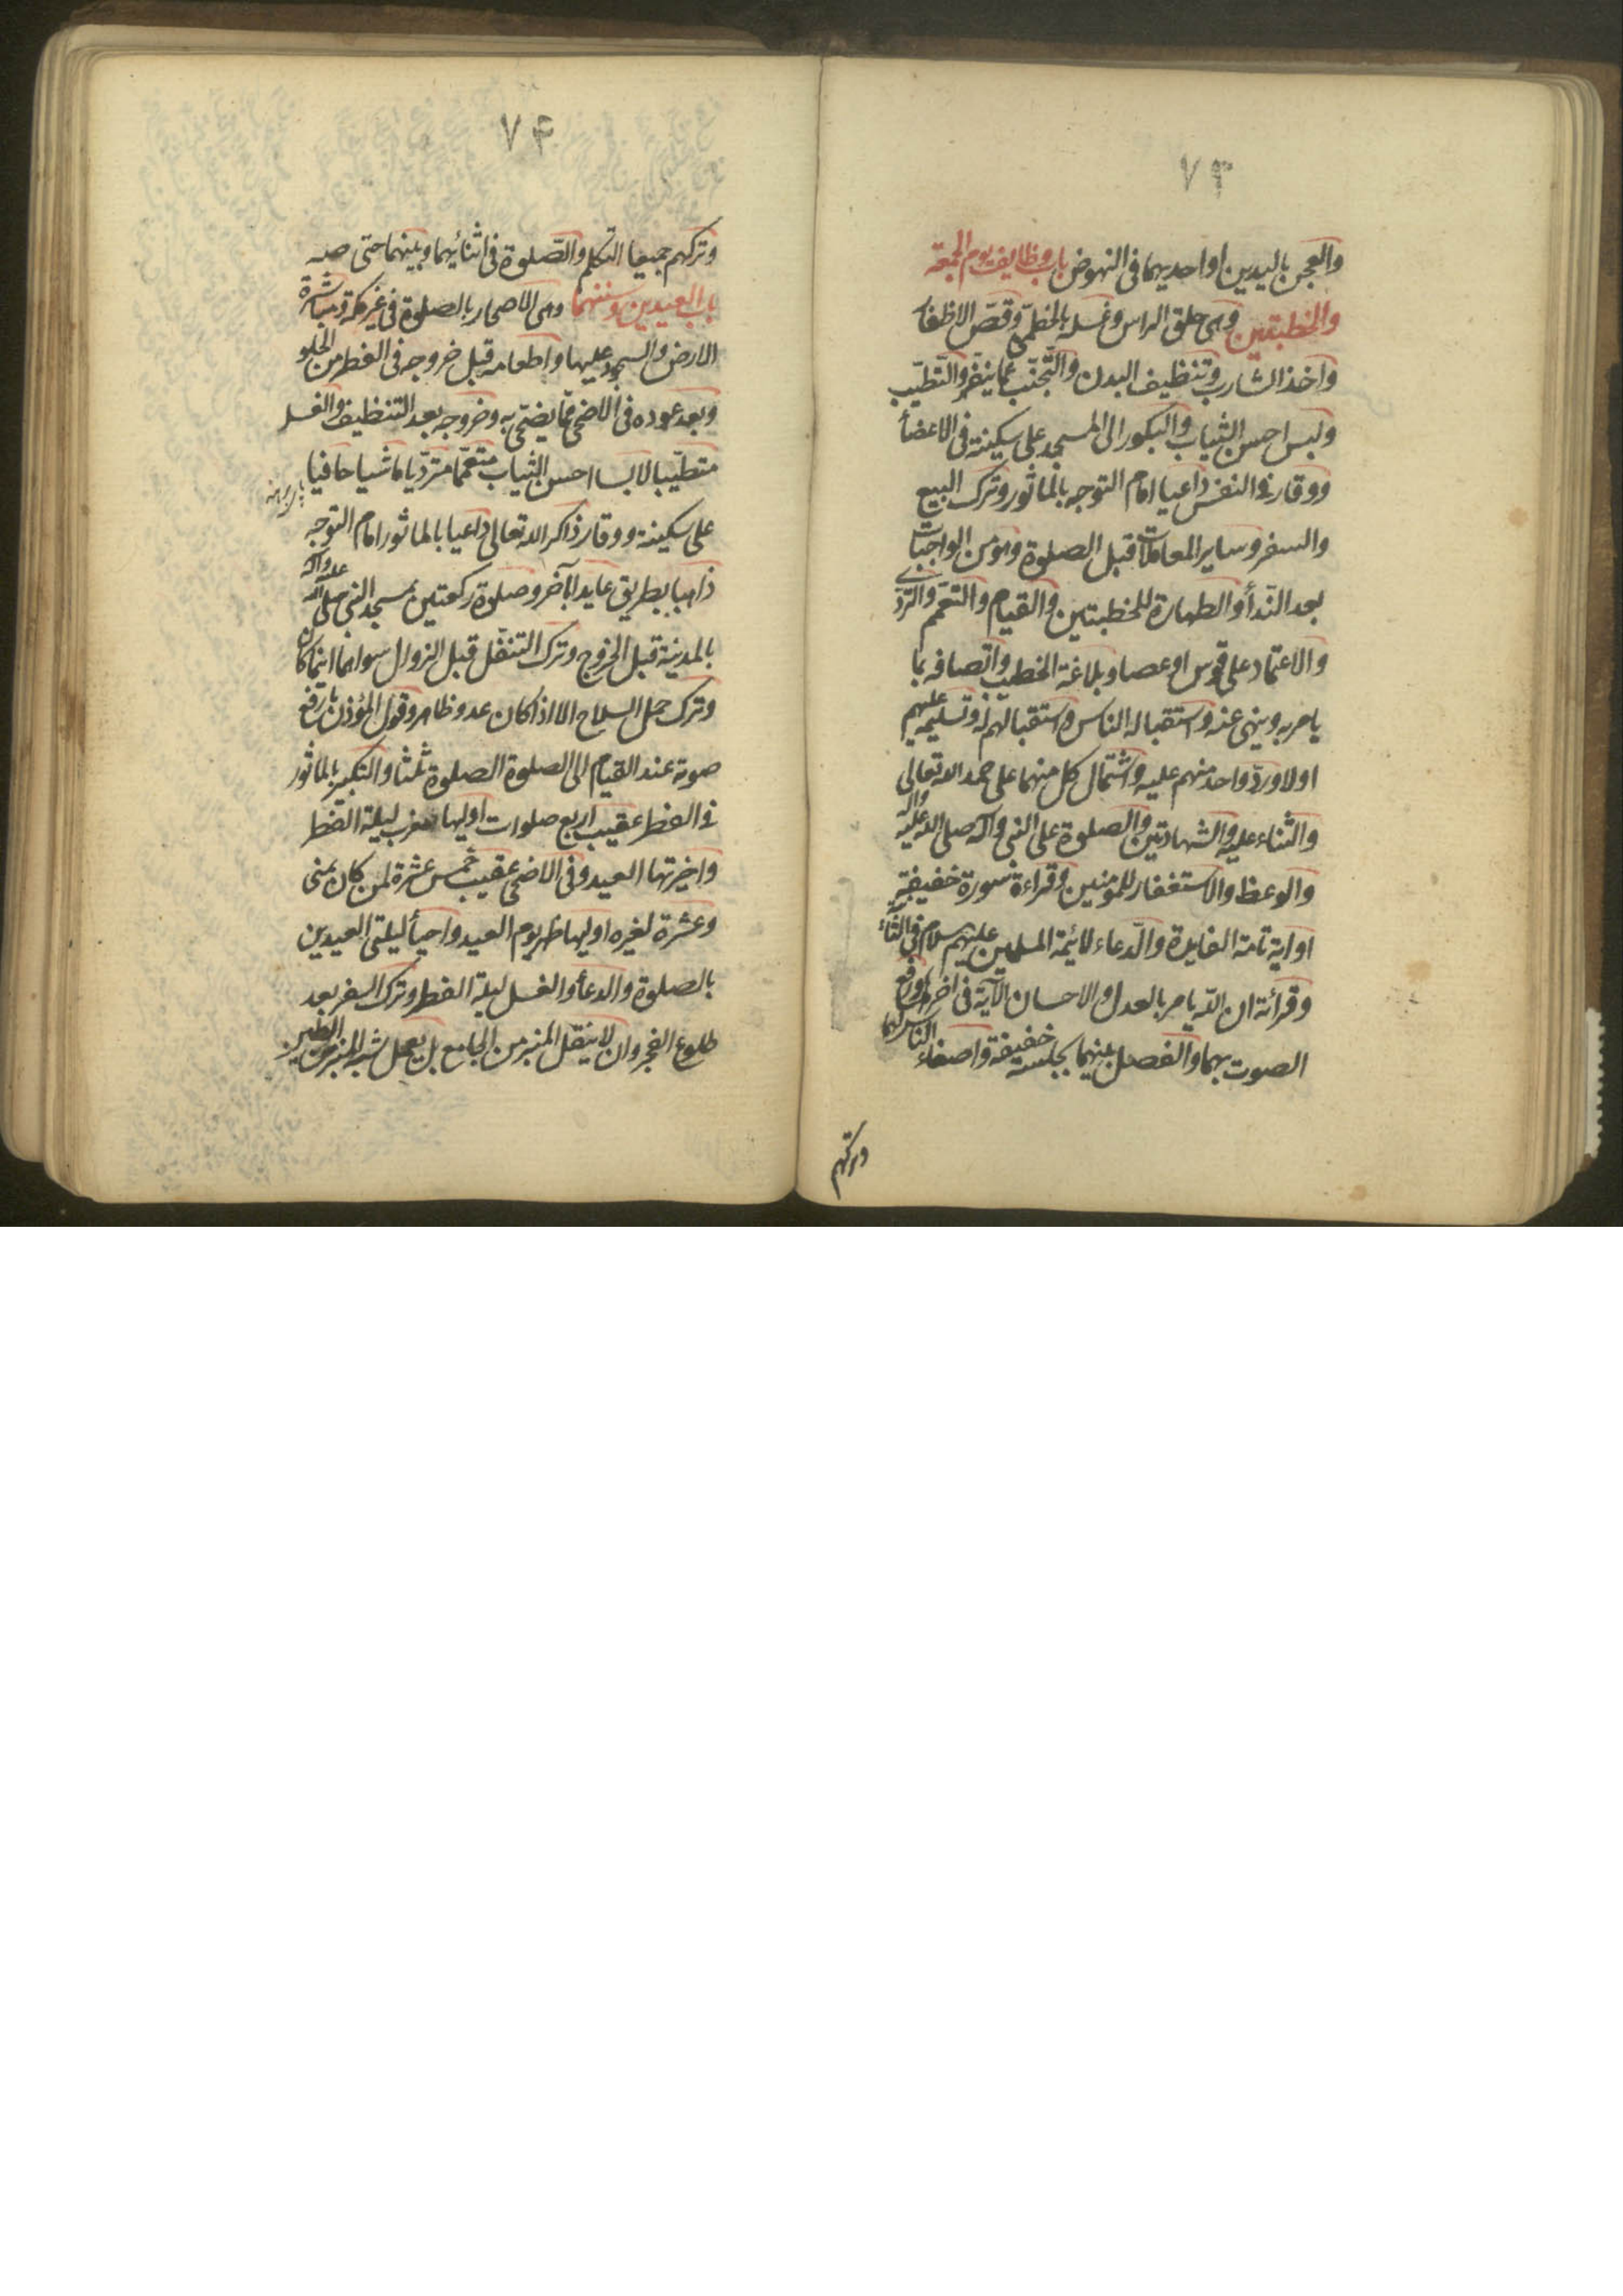 ٧٣
والعجن باليدين او احديهما في النهوض باب وظايف يوم الجمعة
والخطبتين وهي حلق الراس وغسله بالخطمي وقص الاظفار
واخذ الشارب وتنظيف البدن والتجنب عما ينفر والتطيب
ولبس احسن الثياب والبكور الى المسجد على سكينة في الاعضأ
ووقار في النفس داعيا امام التوجه بالماثور وترك البيع
والسفر وساير المعاملات قبل الصلوة وهو من الواجبات
بعد الندأ والطهارة للخطبتين والقيام والتعمم والتردي
والاعتماد على قوس او عصا وبلاغة الخطيب واتصافه بما
يامر به وينهى عنه واستقباله الناس واستقبالهم له وتسليمه عليهم
اولا ورد واحد منهم عليه واشتمال كل منهما على حمد الله تعالى
والثناء عليه والشهادتين والصلوة على النبي وآله صلى الله عليه وآله
والوعظ والاستغفار للمؤمنين وقراءة سورة خفيفة
او اية تامة الفايدة والدعاء لائمة المسلمين عليهم سلام في
وقرائة ان الله يامر بالعدل والاحسان الآية في اخرها ورفع
الصوت بهما والفصل بينهما بجلسة خفيفة واصغاء الناس لهما
وتركهم
٧۴
وتركهم جميعا التكلم والصلوة في اثنائيهما وبينهما حتى
باب العيدين وسننهما وهي الاصحار بالصلوة في غير مكة ومباشرة
الارض والسجود عليها واطعامه قبل خروجه في الفطر من الحلو
وبعد عوده في الاضحى مما يضحى به وخروجه بعد التنظيف والغسل
متطيبا لابسا احسن الثياب متعمما متردّيا ماشيا حافيا
على سكينة ووقار ذاكر الله تعالى داعيا بالماثور امام التوجه
ذاهبا بطريق عايدا بآخر وصلوة ركعتين بمسجد النبي صلى الله عليه وآله
بالمدينة قبل الخروج وترك التنفل قبل الزوال سواهما اينما كان
وترك حمل السلاح الا اذا كان عدو ظاهر وقول المؤذن بارفع
صوته عند القيام الى الصلوة الصلوة ثلثا والتكبير بالماثور
في الفطر عقيب اربع صلوات اوليها مغرب ليلة الفطر
واخيرتها العيد وفي الاضحى عقيب خمس عشرة لمن كان بمنى
وعشرة لغيره اوليها ظهر يوم العيد واحيأ ليلتي العيدين
بالصلوة والدعأ والغسل ليلة الفطر وترك السفر بعد
طلوع الفجر وان لا ينقل المنبر من الجامع بل يعمل شبه المنبر من الطين